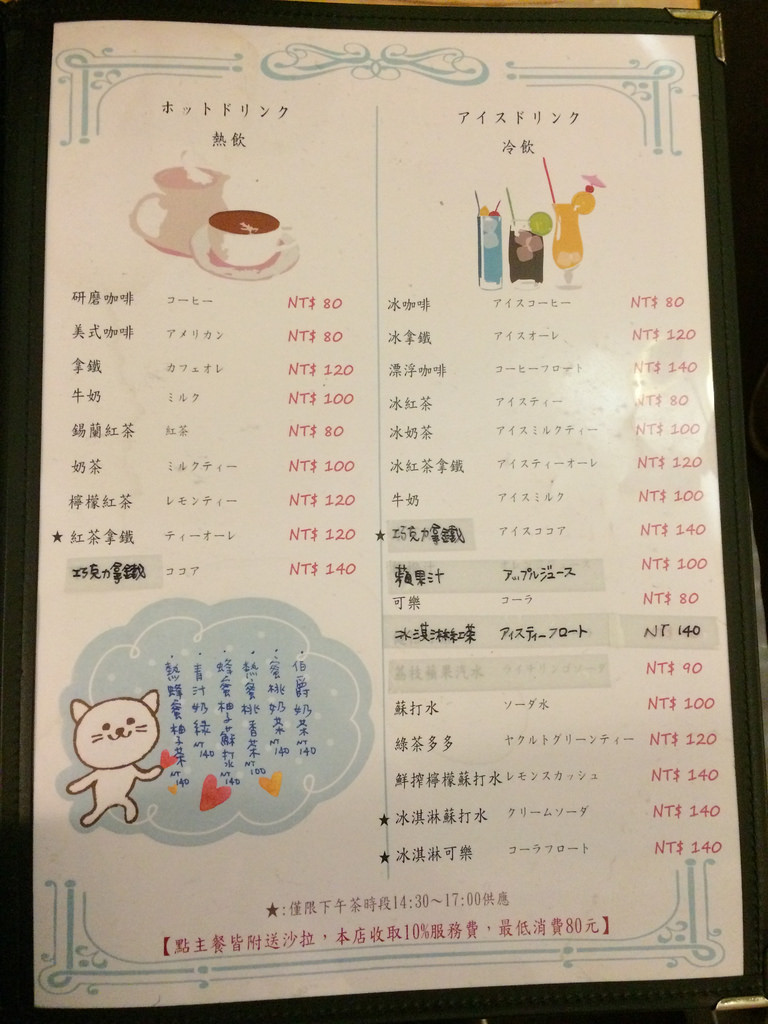 ホットドリンク
熱飲
研磨咖啡 コーヒー NT$ 80
美式咖啡 アメリカン NT$ 80
拿鐵 カフェオレ NT$ 120
牛奶 ミルク NT$ 100
錫蘭紅茶 紅茶 NT$ 80
奶茶 ミルクティー NT$ 100
檸檬紅茶 レモンティー NT$ 120
★紅茶拿鐵 ティーオーレ NT$ 120
巧克力拿鐵 ココア NT$ 140
・伯爵奶茶 NT 140
・蜜桃奶茶 NT 140
・熱蜜桃香茶 NT 100
・蜂蜜柚子蘇打冰 NT 140
・青汁奶綠 NT 140
・熱蜂蜜柚子茶 NT 140
アイスドリンク
冷飲
冰咖啡 アイスコーヒー NT$ 80
冰拿鐵 アイスオーレ NT$ 120
漂浮咖啡 コーヒーフロート NT$ 140
冰紅茶 アイスティー NT$ 80
冰奶茶 アイスミルクティー NT$ 100
冰紅茶拿鐵 アイスティーオーレ NT$ 120
牛奶 アイスミルク NT$ 100
★巧克力拿鐵 アイスココア NT$ 140
蘋果汁 アップルジュース NT$ 100
可樂 コーラ NT$ 80
冰淇淋紅茶 アイスティーフロート NT 140
荔枝蘋果汽水 ライチリンゴソーダ NT$ 90
蘇打水 ソーダ水 NT$ 100
綠茶多多 ヤクルトグリーンティー NT$ 120
鮮搾檸檬蘇打水 レモンスカッシュ NT$ 140
★冰淇淋蘇打水 クリームソーダ NT$ 140
★冰淇淋可樂 コーラフロート NT$ 140
★:僅限下午茶時段14:30～17:00供應
【點主餐皆附送沙拉，本店收取10%服務費，最低消費80元】